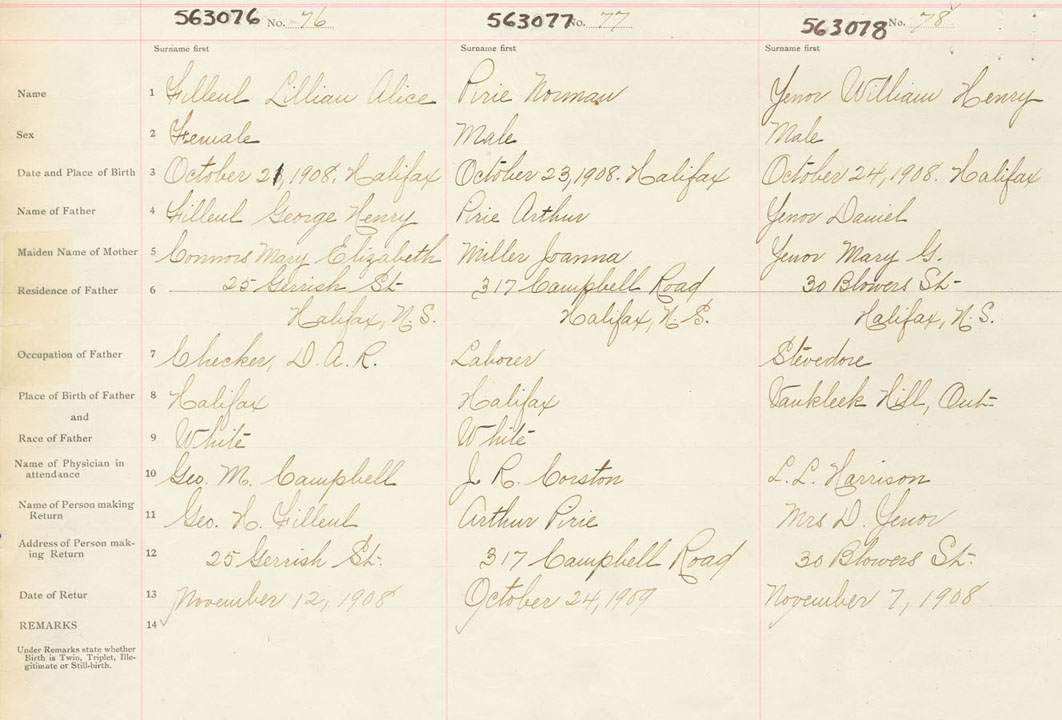 563076 No. 76 563077 No. 77 563078 No. 78
Surname first Surname first Surname first
Name 1 Filleul Lillian Alice Pirie Norman Yenor William Henry
Sex 2 Female Male Male
Date and Place of Birth 3 October 21, 1908. Halifax October 23, 1908. Halifax October 24, 1908. Halifax
Name of Father 4 Filleul George Henry Pirie Arthur Yenor Daniel
Maiden Name of Mother 5 Connors Mary Elizabeth Miller Joanna Yenor Mary G.
Residence of Father 6 25 Gerrish St- 317 Campbell Road 30 Blowers St-
Halifax, N.S. Halifax, N.S. Halifax, N.S.
Occupation of Father 7 Checker, D.A.R. Laborer Stevedore
Place of Birth of Father 8 Halifax Halifax Vankleek Hill, Ont-
and
Race of Father 9 White White
Name of Physician in
attendance 10 Geo. M. Campbell J. R. Corston L. L. Harrison
Name of Person making
Return 11 Geo. H. Filleul Arthur Pirie Mrs D. Yenor
Address of Person mak-
ing Return 12 25 Gerrish St. 317 Campbell Road 30 Blowers St.
Date of Retur 13 November 12, 1908 October 24, 1909 November 7, 1908
REMARKS 14
Under Remarks state whether
Birth is Twin, Triplet, Ille-
gitimate or Still-birth.